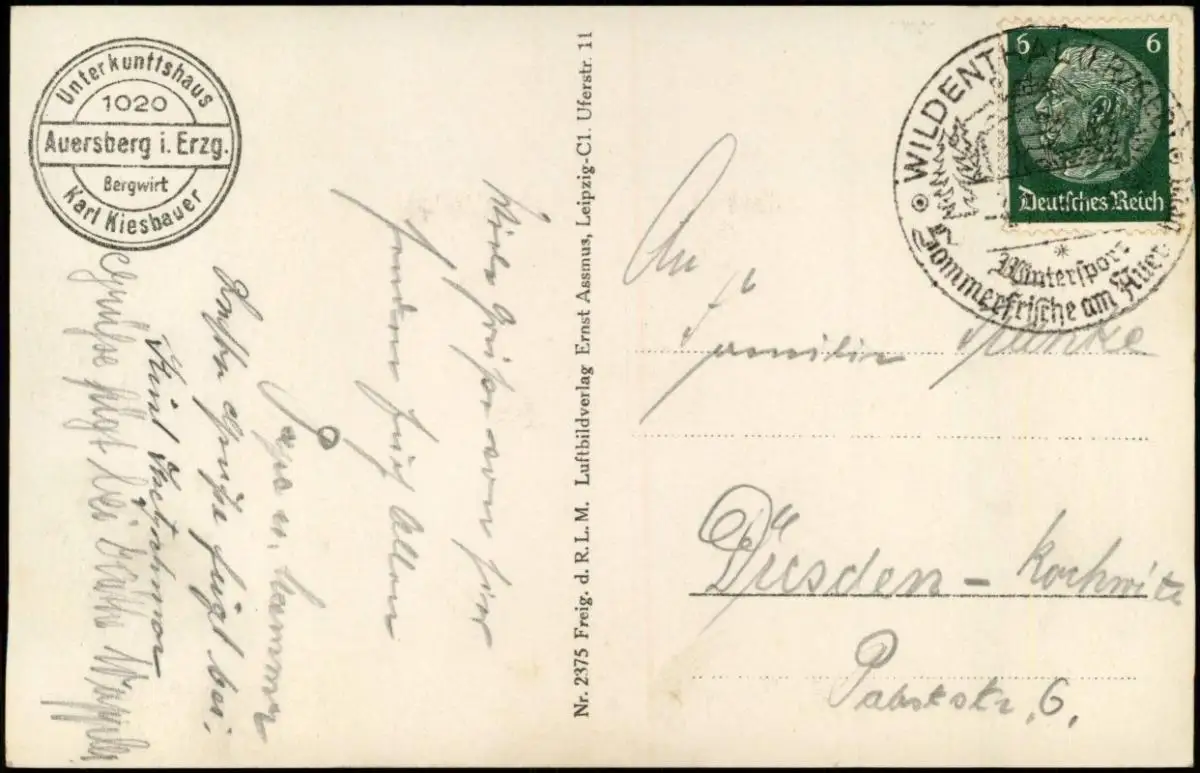 Unterkunftshaus
1020
Auersberg i. Erzg.
Bergwirt
Karl Kiesbauer
Viele Grüße von hier
senden Euch Allen
u.
Grüße fügt bei
Grüße fügt bei Käthe
Nr. 2375 Freig. d. R. L. M. Luftbildverlag Ernst Assmus, Leipzig-C1. Uferstr. 11
6 6
Deutsches Reich
WILDENTHAL (ERZGEB.)
Wintersport
Sommerfrische am Auer
An
Familie
Dresden - Rochwitz
Pabststr. 6.